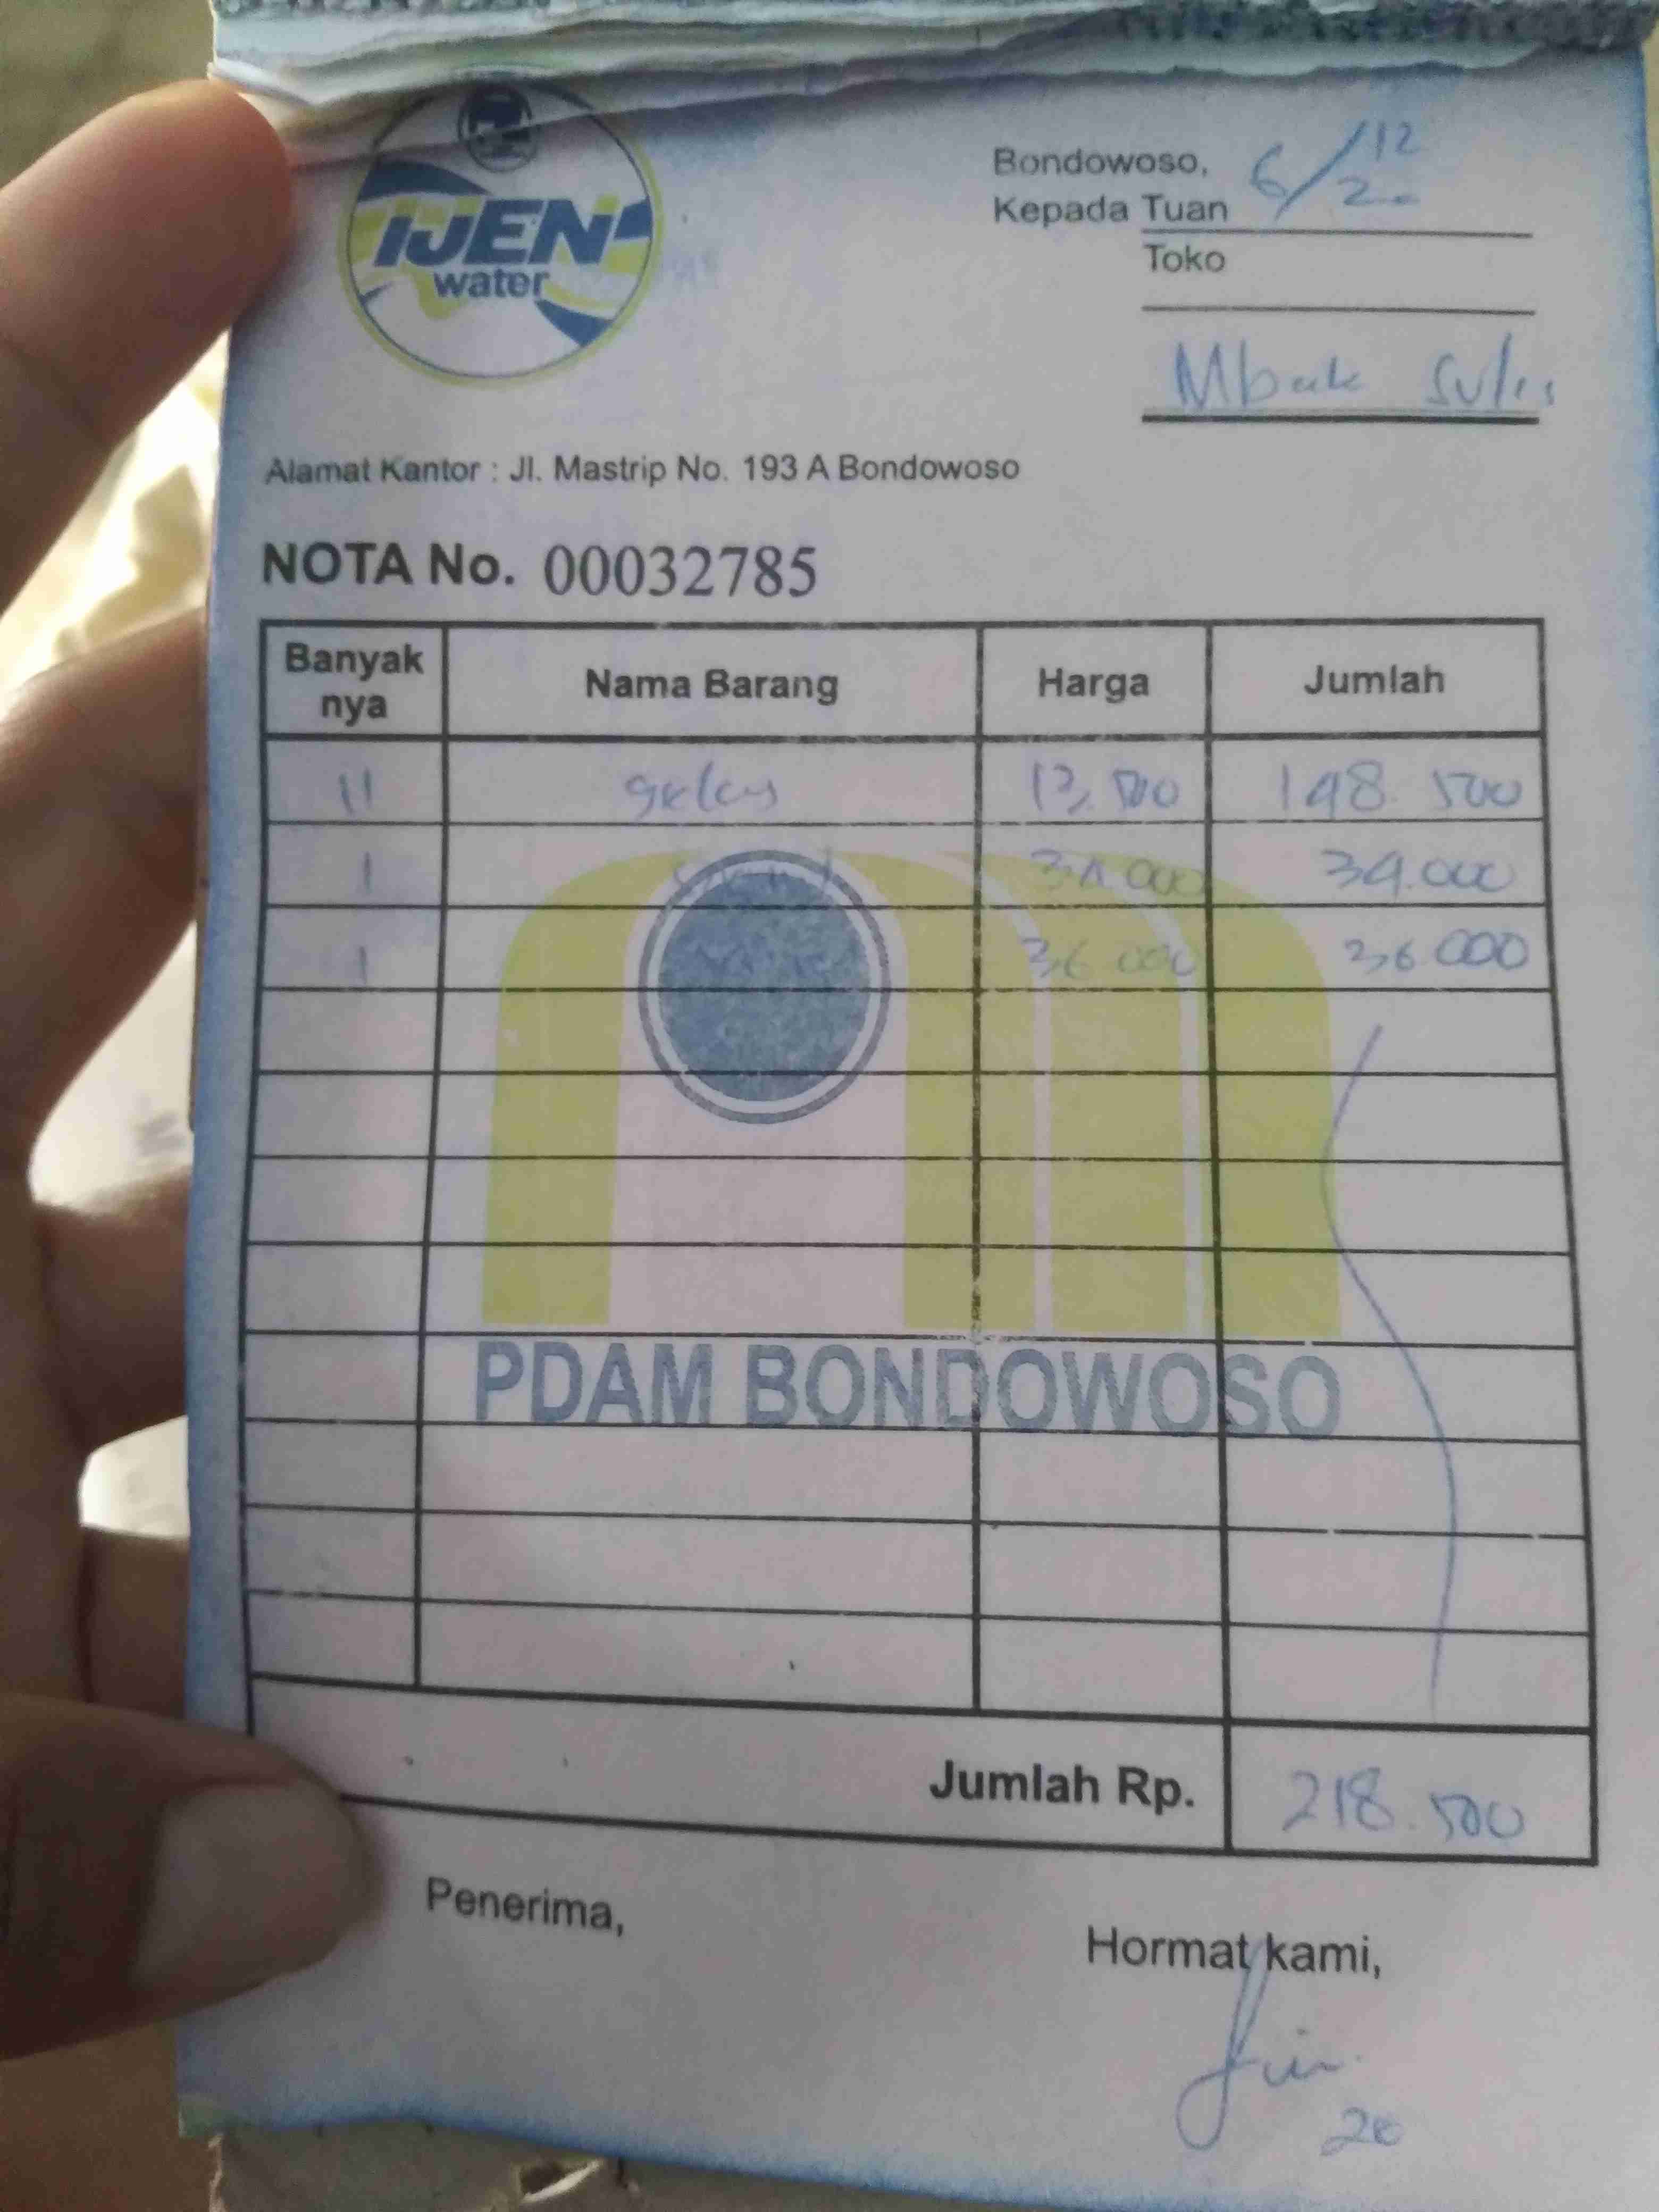 IJEN
water
Bondowoso, 6/12 20
Kepada Tuan
Toko
Mbak Sulis
Alamat Kantor : Jl. Mastrip No. 193 A Bondowoso
NOTA No. 00032785
Banyak nya Nama Barang Harga Jumlah
11 gelas 13.500 148.500
1 34.000 34.000
1 36.000 36.000
PDAM BONDOWOSO
Jumlah Rp. 218.500
Penerima,
Hormat kami,